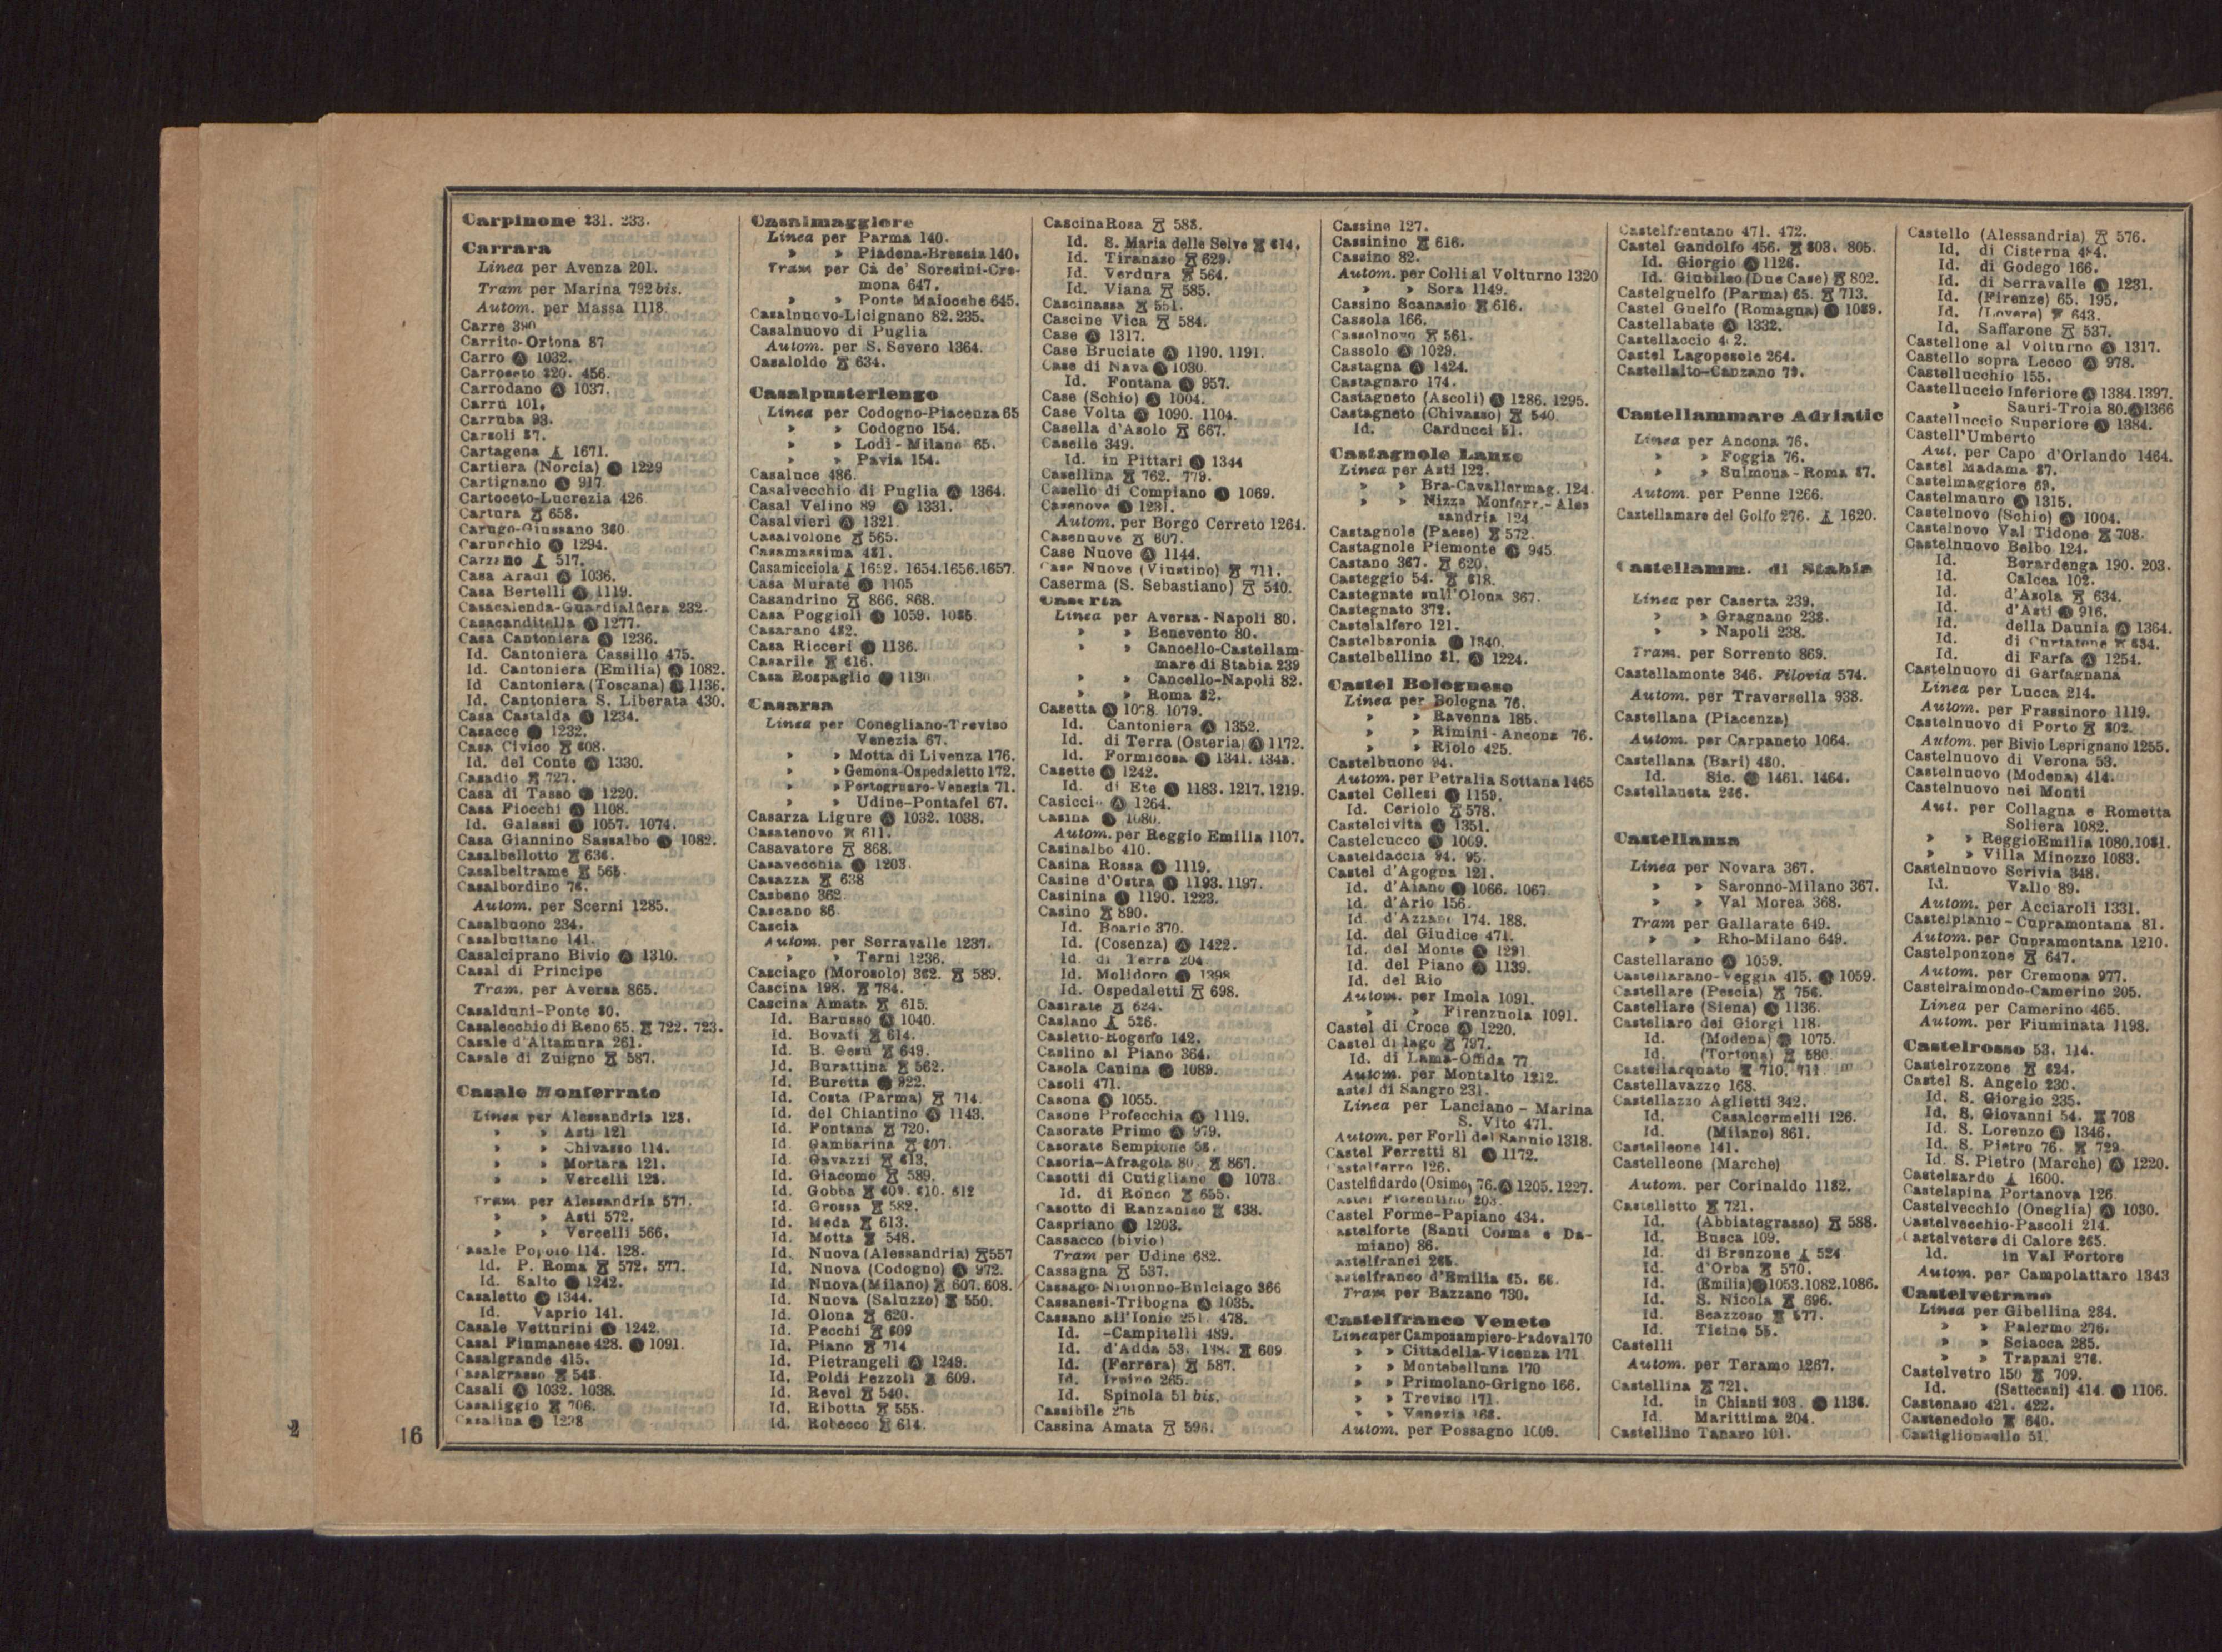 Carpinone 231. 233.
Carrara
Linea per Avenza 201.
Tram per Marina 792 bis.
Autom. per Massa 1118
Carre 380
Carrito-Ortona 87
Carro Ⓐ 1032.
Carroceto 220. 456.
Carrodano Ⓐ 1037.
Carrù 101.
Carruba 93.
Carsoli 87.
Cartagena 1671.
Cartiera (Norcia) Ⓐ 1229
Cartignano Ⓐ 917
Cartoceto-Lucrezia 426
Cartura 658.
Carugo-Giussano 360
Carunchio Ⓐ 1294.
Carzano 517.
Casa Aradi Ⓐ 1036.
Casa Bertelli Ⓐ 1119.
Casacalenda-Guardialfiera 232.
Casacanditella Ⓐ 1277.
Casa Cantoniera Ⓐ 1236.
Id. Cantoniera Cassillo 475.
Id. Cantoniera (Emilia) Ⓐ 1082.
Id Cantoniera (Toscana) Ⓐ 1136.
Id. Cantoniera S. Liberata 430.
Casa Castalda Ⓐ 1234.
Casacce Ⓐ 1232.
Casa Civico 608.
Id. del Conte Ⓐ 1330.
Casadio 727.
Casa di Tasso Ⓐ 1220.
Casa Fiocchi Ⓐ 1108.
Id. Galassi Ⓐ 1057. 1074.
Casa Giannino Sassalbo Ⓐ 1082.
Casalbellotto 636.
Casalbeltrame 565.
Casalbordino 76.
Autom. per Scerni 1285.
Casalbuono 234.
Casalbuttano 141.
Casalciprano Bivio Ⓐ 1310.
Casal di Principe
Tram. per Aversa 865.
Casalduni-Ponte 80.
Casalecchio di Reno 65. 722. 723.
Casale d'Altamura 261.
Casale di Zuigno 587.
Casale Monferrato
Linea per Alessandria 128.
» » Asti 121
» » Chivasso 114.
» » Mortara 121.
» » Vercelli 128.
Tram. per Alessandria 571.
» » Asti 572.
» » Vercelli 566.
Casale Popolo 114. 128.
Id. P. Roma 572. 577.
Id. Salto Ⓐ 1242.
Casaletto Ⓐ 1344.
Id. Vaprio 141.
Casale Vetturini Ⓐ 1242.
Casal Fiumanese 428. Ⓐ 1091.
Casalgrande 415.
Casalgrasso 548.
Casali Ⓐ 1032. 1038.
Casaliggio 706.
Casalina Ⓐ 1228
Casalmaggiore
Linea per Parma 140.
» » Piadena-Brescia 140.
Tram per Cà de' Soresini-Cremona 647.
» » Ponte Malocche 645.
Casalnuovo-Licignano 82. 235.
Casalnuovo di Puglia
Autom. per S. Severo 1364.
Casaloldo 634.
Casalpusterlengo
Linea per Codogno-Piacenza 65
» » Codogno 154.
» » Lodi-Milano 65.
» » Pavia 154.
Casaluce 486.
Casalvecchio di Puglia Ⓐ 1364.
Casal Velino 89 Ⓐ 1331.
Casalvieri Ⓐ 1321
Casalvolone 565.
Casamassima 481.
Casamicciola 1652. 1654. 1656. 1657.
Casa Murate Ⓐ 1105
Casandrino 866. 868.
Casa Poggioli Ⓐ 1059. 1085
Casarano 482.
Casa Ricceri Ⓐ 1136.
Casarile 616.
Casa Rospaglio Ⓐ 1130
Casarsa
Linea per Conegliano-Treviso
Venezia 67.
» » Motta di Livenza 176.
» » Gemona-Ospedaletto 172.
» » Portogruaro-Venezia 71.
» » Udine-Pontafel 67.
Casarza Ligure Ⓐ 1032. 1038.
Casatenovo 611.
Casavatore 868.
Casavecchia Ⓐ 1203
Casazza 638
Casbeno 362
Cascano 86
Cascia
Autom. per Serravalle 1237.
» » Terni 1236.
Casciago (Morosolo) 362. 589.
Cascina 198. 784.
Cascina Amata 615.
Id. Barusso Ⓐ 1040.
Id. Bovati 614.
Id. B. Gesù 649.
Id. Burattina 562.
Id. Buretta Ⓐ 922.
Id. Costa (Parma) 714.
Id. del Chiantino Ⓐ 1143.
Id. Fontana 720.
Id. Gambarina 607.
Id. Gavazzi 613.
Id. Giacomo 589.
Id. Gobba 609. 610. 612
Id. Grossa 582.
Id. Meda 613.
Id. Motta 548.
Id. Nuova (Alessandria) 557
Id. Nuova (Codogno) Ⓐ 972.
Id. Nuova (Milano) 607. 608.
Id. Nuova (Saluzzo) 550.
Id. Olona 620.
Id. Pecchi 609
Id. Piano 714
Id. Pietrangeli Ⓐ 1249.
Id. Poldi Pezzoli 609.
Id. Revel 540.
Id. Ribotta 555.
Id. Robecco 614.
Cascina Rosa 588.
Id. S. Maria delle Selve 614.
Id. Tiranaso 629.
Id. Verdura 564.
Id. Viana 585.
Cascinassa 551.
Cascine Vica 584.
Case Ⓐ 1317.
Case Bruciate Ⓐ 1190. 1191.
Case di Nava Ⓐ 1030.
Id. Fontana Ⓐ 957.
Case (Schio) Ⓐ 1004.
Case Volta Ⓐ 1090. 1104.
Casella d'Asolo 667.
Caselle 349.
Id. in Pittari Ⓐ 1344
Casellina 762. 779.
Casello di Compiano Ⓐ 1069.
Casenove Ⓐ 1231.
Autom. per Borgo Cerreto 1264.
Casenuove 607.
Case Nuove Ⓐ 1144.
Case Nuove (Viustino) 711.
Caserma (S. Sebastiano) 540.
Caserta
Linea per Aversa-Napoli 80.
» » Benevento 80.
» » Cancello-Castellammare di Stabia 239
» » Cancello-Napoli 82.
» » Roma 82.
Casetta Ⓐ 1078. 1079.
Id. Cantoniera Ⓐ 1352.
Id. di Terra (Osteria) Ⓐ 1172.
Id. Formicosa Ⓐ 1341. 1348.
Casette Ⓐ 1242.
Id. di Ete Ⓐ 1183. 1217. 1219.
Casiccio Ⓐ 1264.
Casina Ⓐ 1080.
Autom. per Reggio Emilia 1107.
Casinalbo 410.
Casina Rossa Ⓐ 1119.
Casine d'Ostra Ⓐ 1193. 1197.
Casinina Ⓐ 1190. 1223.
Casino 890.
Id. Boario 370.
Id. (Cosenza) Ⓐ 1422.
Id. di Terra 204.
Id. Molidoro Ⓐ 1398
Id. Ospedaletti 698.
Casirate 624.
Caslano 526.
Casletto-Rogeno 142.
Caslino al Piano 364.
Casola Canina Ⓐ 1089.
Casoli 471.
Casona Ⓐ 1055.
Casone Profecchia Ⓐ 1119.
Casorate Primo Ⓐ 979.
Casorate Sempione 58.
Casoria-Afragola 80. 867.
Casotti di Cutigliano Ⓐ 1073.
Id. di Ronco 655.
Casotto di Ranzanico 638.
Caspriano Ⓐ 1203.
Cassacco (bivio)
Tram per Udine 682.
Cassagna 537.
Cassago-Nibionno-Bulciago 366
Cassanesi-Tribogna Ⓐ 1035.
Cassano all'Ionio 251. 478.
Id. -Campitelli 489.
Id. d'Adda 53. 609
Id. (Ferrera) 587.
Id. Irpino 265.
Id. Spinola 51 bis.
Cassibile 275
Cassina Amata 596.
Cassine 127.
Cassinino 616.
Cassino 82.
Autom. per Colli al Volturno 1320
» » Sora 1149.
Cassino Scanasio 616.
Cassola 166.
Cassolnovo 561.
Cassolo Ⓐ 1029.
Castagna Ⓐ 1424.
Castagnaro 174.
Castagneto (Ascoli) Ⓐ 1286. 1295.
Castagneto (Chivasso) 540.
Id. Carducci 51.
Castagnole Lanze
Linea per Asti 122.
» » Bra-Cavallermag. 124.
» » Nizza Monferr.-Alessandria 124
Castagnole (Paese) 572.
Castagnole Piemonte Ⓐ 945.
Castano 367. 620.
Casteggio 54. 618.
Castegnate sull'Olona 367.
Castegnato 372.
Castelalfero 121.
Castelbaronia Ⓐ 1340.
Castelbellino 81. Ⓐ 1224.
Castel Bolognese
Linea per Bologna 76.
» » Ravenna 185.
» » Rimini-Ancona 76.
» » Riolo 425.
Castelbuono 94.
Autom. per Petralia Sottana 1465
Castel Cellesi Ⓐ 1159.
Id. Ceriolo 578.
Castelcivita Ⓐ 1351.
Castelcucco Ⓐ 1009.
Casteldaccia 94. 95.
Castel d'Agogna 121.
Id. d'Aiano Ⓐ 1066. 1067.
Id. d'Ario 156.
Id. d'Azzano 174. 188.
Id. del Giudice 471.
Id. del Monte Ⓐ 1291
Id. del Piano Ⓐ 1139.
Id. del Rio
Autom. per Imola 1091.
» » Firenzuola 1091.
Castel di Croce Ⓐ 1220.
Castel di lago 797.
Id. di Lama-Offida 77
Autom. per Montalto 1212.
astel di Sangro 231.
Linea per Lanciano - Marina
S. Vito 471.
Autom. per Forlì del Sannio 1318.
Castel Ferretti 81 Ⓐ 1172.
Castelferro 126.
Castelfidardo (Osimo) 76. Ⓐ 1205. 1227.
Castel Fiorentino 203.
Castel Forme-Papiano 434.
astelforte (Santi Cosma e Damiano) 86.
astelfranci 265.
astelfranco d'Emilia 65. 66.
Tram per Bazzano 730.
Castelfranco Veneto
Linea per Camposampiero-Padova 170
» » Cittadella-Vicenza 171
» » Montebelluna 170
» » Primolano-Grigno 166.
» » Treviso 171.
» » Venezia 168.
Autom. per Possagno 1009.
Castelfrentano 471. 472.
Castel Gandolfo 456. 803. 805.
Id. Giorgio Ⓐ 1126.
Id. Giubileo (Due Case) 802.
Castelguelfo (Parma) 65. 713.
Castel Guelfo (Romagna) Ⓐ 1089.
Castellabate Ⓐ 1332.
Castellaccio 4 2.
Castel Lagopesole 264.
Castellalto-Canzano 79.
Castellammare Adriatic
Linea per Ancona 76.
» » Foggia 76.
» » Sulmona-Roma 87.
Autom. per Penne 1266.
Castellamare del Golfo 276. 1620.
Castellamm. di Stabia
Linea per Caserta 239.
» » Gragnano 238.
» » Napoli 238.
Tram. per Sorrento 869.
Castellamonte 346. Filovia 574.
Autom. per Traversella 938.
Castellana (Piacenza)
Autom. per Carpaneto 1064.
Castellana (Bari) 480.
Id. Sic. Ⓐ 1461. 1464.
Castellaneta 266.
Castellanza
Linea per Novara 367.
» » Saronno-Milano 367.
» » Val Morea 368.
Tram per Gallarate 649.
» » Rho-Milano 649.
Castellarano Ⓐ 1059.
Castellarano-Veggia 415. Ⓐ 1059.
Castellare (Pescia) 756.
Castellare (Siena) Ⓐ 1136.
Castellaro dei Giorgi 118.
Id. (Modena) Ⓐ 1075.
Id. (Tortona) 580.
Castellarquato 710. 711.
Castellavazzo 168.
Castellazzo Aglietti 342.
Id. Casalcermelli 126.
Id. (Milano) 861.
Castelleone 141.
Castelleone (Marche)
Autom. per Corinaldo 1182.
Castelletto 721.
Id. (Abbiategrasso) 588.
Id. Busca 109.
Id. di Brenzone 524
Id. d'Orba 570.
Id. (Emilia) Ⓐ 1053. 1082. 1086.
Id. S. Nicola 696.
Id. Scazzoso 577.
Id. Ticino 55.
Castelli
Autom. per Teramo 1267.
Castellina 721.
Id. in Chianti 203. Ⓐ 1136.
Id. Marittima 204.
Castellino Tanaro 101.
Castello (Alessandria) 576.
Id. di Cisterna 484.
Id. di Godego 166.
Id. di Serravalle Ⓐ 1231.
Id. (Firenze) 65. 195.
Id. (Lovere) 643.
Id. Saffarone 537.
Castellone al Volturno Ⓐ 1317.
Castello sopra Lecco Ⓐ 978.
Castellucchio 155.
Castelluccio Inferiore Ⓐ 1384. 1397.
» Sauri-Troia 80. Ⓐ 1366
Castelluccio Superiore Ⓐ 1384.
Castell'Umberto
Aut. per Capo d'Orlando 1464.
Castel Madama 87.
Castelmaggiore 69.
Castelmauro Ⓐ 1315.
Castelnovo (Schio) Ⓐ 1004.
Castelnovo Val Tidone 708.
Castelnuovo Belbo 124.
Id. Berardenga 190. 203.
Id. Calcea 102.
Id. d'Asola 634.
Id. d'Asti Ⓐ 916.
Id. della Daunia Ⓐ 1364.
Id. di Curtatone 634.
Id. di Farfa Ⓐ 1254.
Castelnuovo di Garfagnana
Linea per Lucca 214.
Autom. per Frassinoro 1119.
Castelnuovo di Porto 802.
Autom. per Bivio Leprignano 1255.
Castelnuovo di Verona 53.
Castelnuovo (Modena) 414.
Castelnuovo nei Monti
Aut. per Collagna e Rometta
Soliera 1082.
» » Reggio Emilia 1080. 1081.
» » Villa Minozzo 1083.
Castelnuovo Scrivia 348.
Id. Vallo 89.
Autom. per Acciaroli 1331.
Castelplanio-Cupramontana 81.
Autom. per Cupramontana 1210.
Castelponzone 647.
Autom. per Cremona 977.
Castelraimondo-Camerino 205.
Linea per Camerino 465.
Autom. per Fiuminata 1198.
Castelrosso 53. 114.
Castelrozzone 624.
Castel S. Angelo 230.
Id. S. Giorgio 235.
Id. S. Giovanni 54. 708
Id. S. Lorenzo Ⓐ 1346.
Id. S. Pietro 76. 729.
Id. S. Pietro (Marche) Ⓐ 1220.
Castelsardo 1600.
Castelspina Portanova 126
Castelvecchio (Oneglia) Ⓐ 1030.
Castelvecchio-Pascoli 214.
Castelvetere di Calore 265.
Id. in Val Fortore
Autom. per Campolattaro 1343
Castelvetrano
Linea per Gibellina 284.
» » Palermo 276.
» » Sciacca 285.
» » Trapani 276.
Castelvetro 150 709.
Id. (Settecani) 414. Ⓐ 1106.
Castenaso 421. 422.
Castenedolo 640.
Castiglioncello 51.
16
2